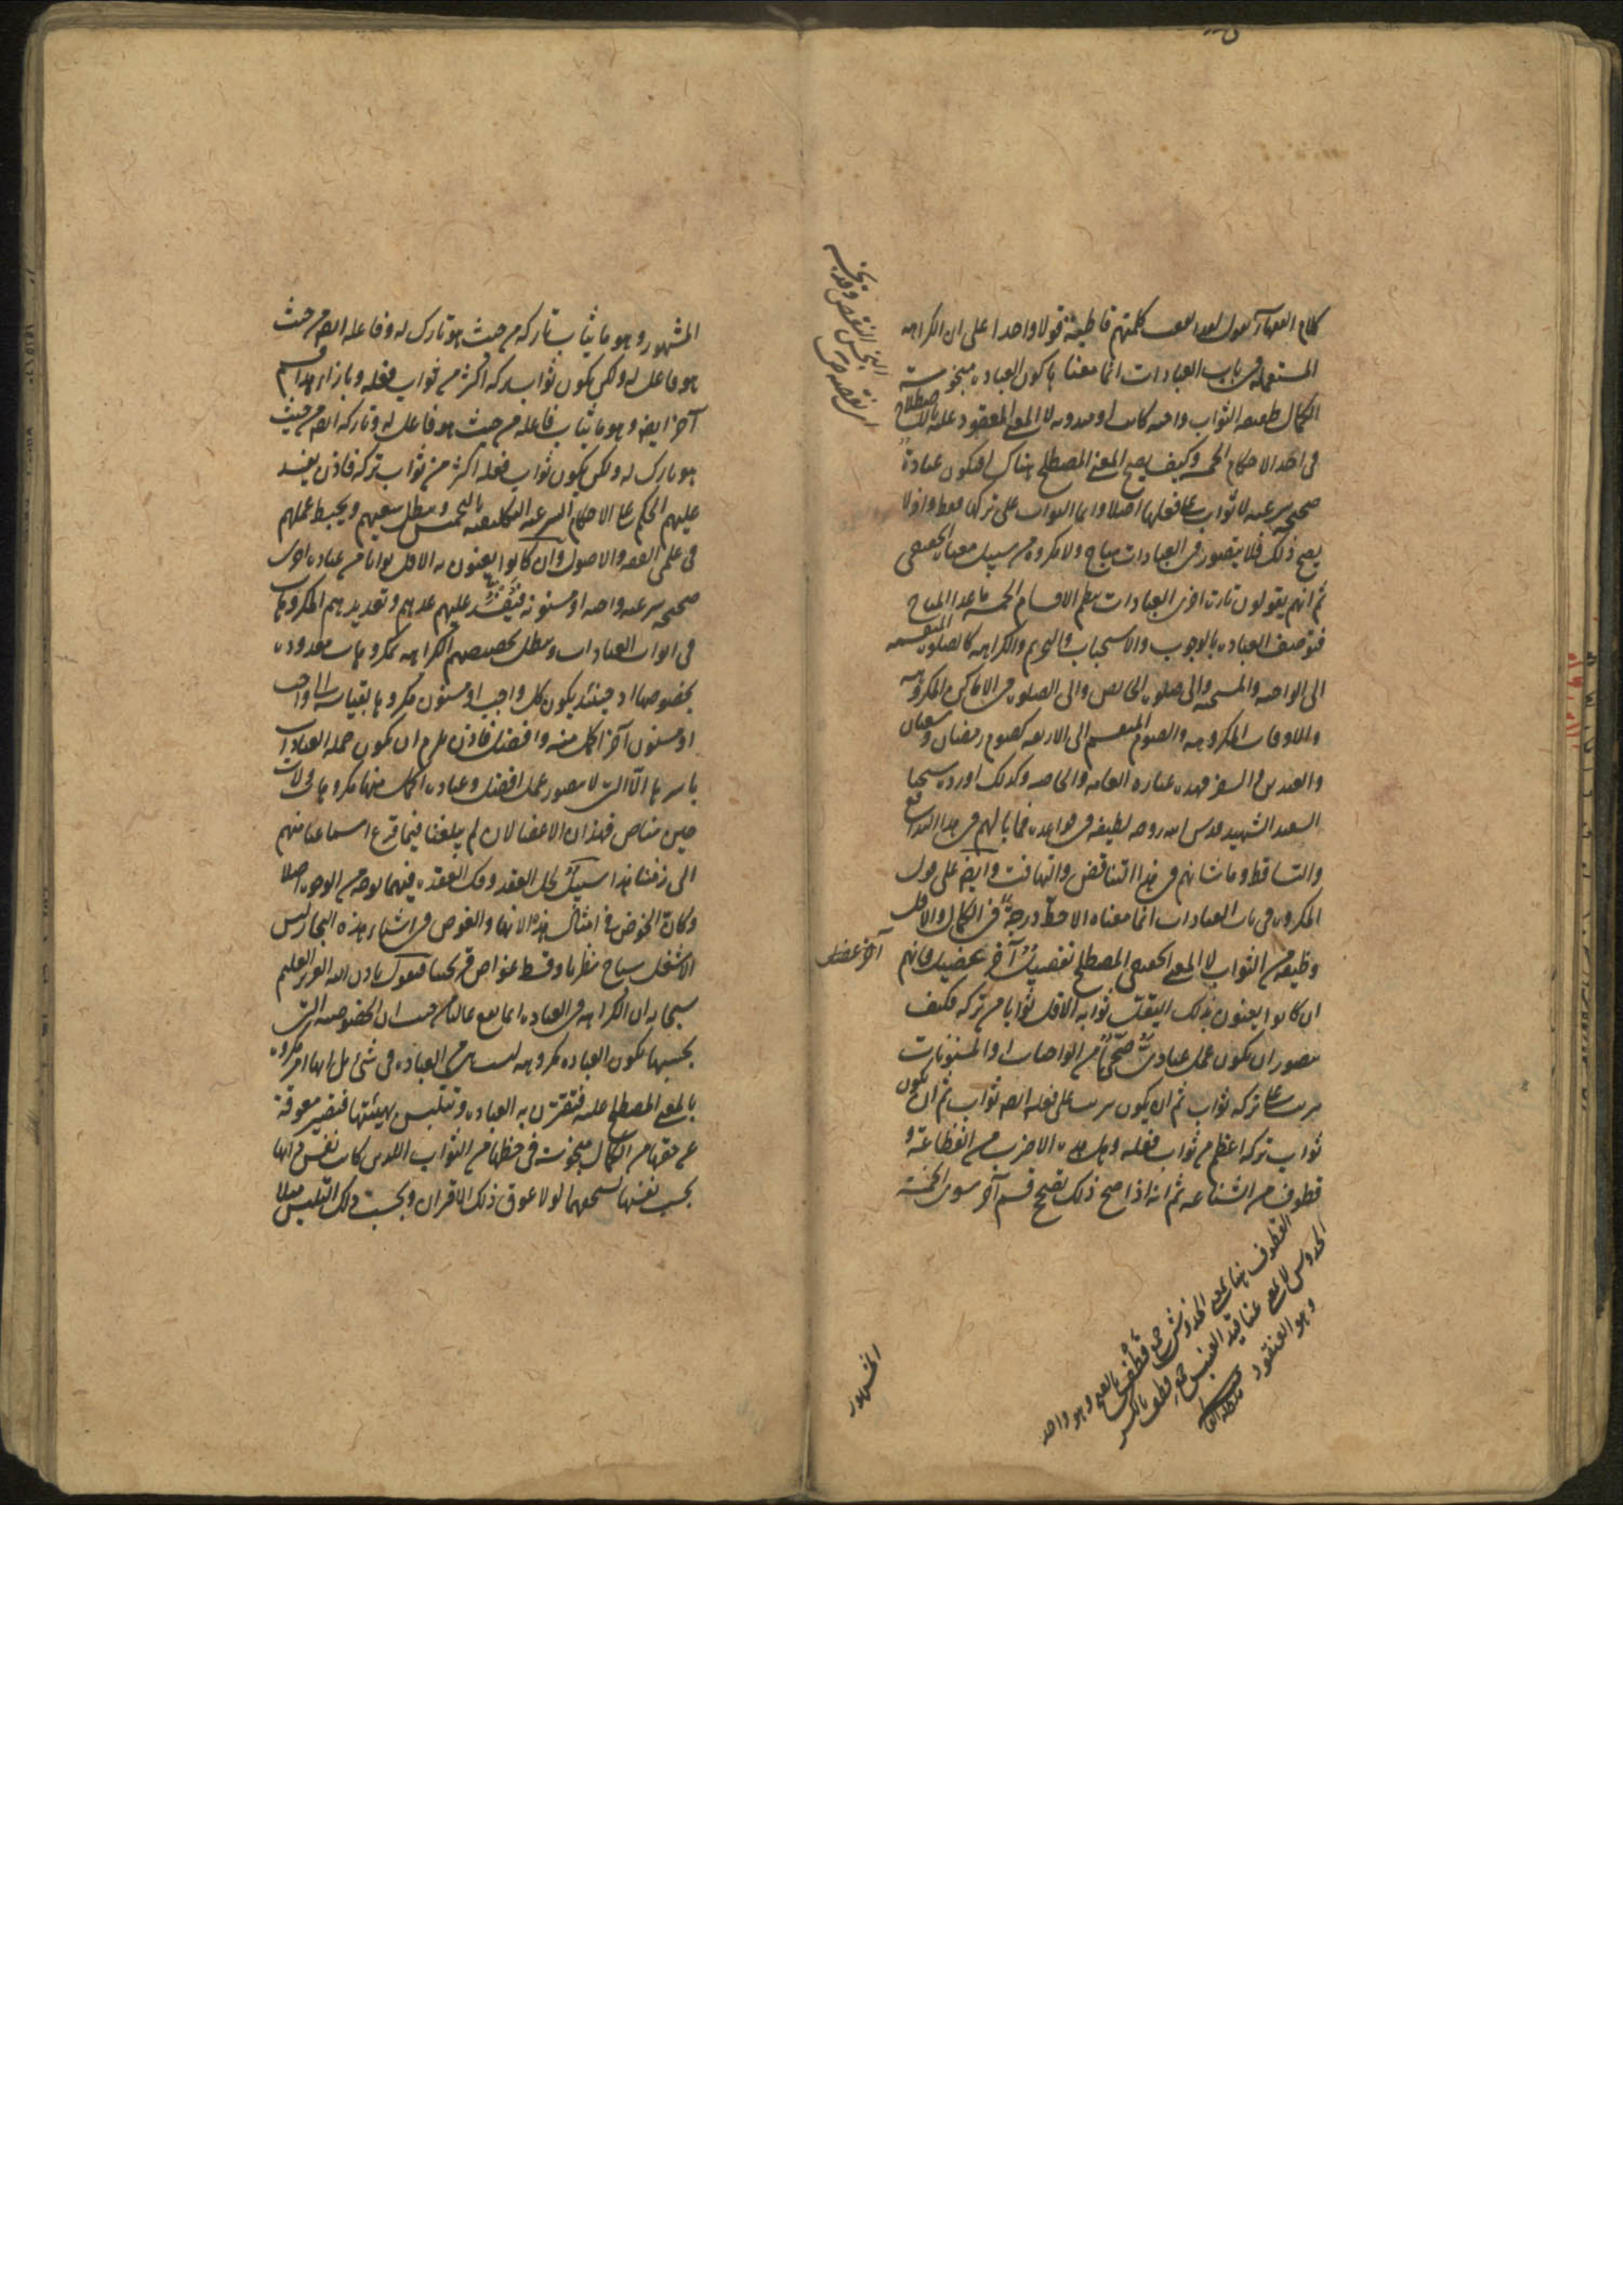 كلام الفقهاء نقول لقد اتفقت كلمتهم قاطبة قولا واحدا على ان الكراهه
المستعمله في باب العبادات انما معناها كون العباده مبخوسة
الكمال طفيفه الثواب واجبه كانت او مندوبه لا المعنى المعقود عليه الاصطلاح
في احد الاحكام الخمسه وكيف يصح المعنى المصطلح هناك افيكون عبادة
صحيحه شرعيه لا ثواب على فعلها اصلا وانما الثواب على تركها فقط واذ لا
يصح ذلك فلا يتصور في العبادات مباح ولا مكروه من سبيل معناه الحقيقي
ثم انهم يقولون تارت اخرى العبادات ينظم الاقسام الخمسه ما عدا المباح
فتوصف العباده بالوجوب والاستحباب والتحريم والكراهه كالصلوه المنقسمه
الى الواجبه والمستحبه والى صلوه الحائض والى الصلوه في الاماكن المكروهه
والاوقات المكروهه والصوم المنقسم الى الاربعه كصوم رمضان وشعبان
والعيدين والسفر فهذه عباره العامه والخاصه وكذلك اورده شيخنا
السعيد الشهيد قدس الله روحه لطيفه في قواعده فما بالهم في هذا التدافع
والتساقط وما شانهم في هذا التناقض والتهافت وايضا على قول
المكروه في باب العبادات انما معناه الاحط درجة في الكمال والاقل
وظيفه من الثواب لا المعنى الحقيقي المصطلح تفصيل آخر عضيل فانهم
ان كانوا يعنون بذلك القليل ثوابه الاقل ثوابا من تركه فكيف
يتصور ان يكون عمل عبادي صحي من الواجبات او المسنونات
يترتب على تركه ثواب ثم ان يكون يترتب على فعله ايضا ثواب ثم ان يكون
ثواب تركه اعظم من ثواب فعله وهل هذه الا ضرب من الفظاعة و
قطوف من الشناعه ثم انه اذا صح ذلك تصحح قسم آخر سوى الخمسة
البخس النقص وقد بخسه
اى نقصه حقه
آخر عضل
القطوف هنا بمعنى الخدوش جمع قطف بالفتح وهو واحد
الخدوش لا بمعنى عناقيد العنب جمع قطف بالكسر
وهو العنقود
المشهور
المشهور وهو ما يثاب تاركه من حيث هو تارك له وفاعله ايضا من حيث
هو فاعل له ولكن يكون ثواب تركه اكثر من ثواب فعله وبازاء هذا قسم
آخر ايضا وهو ما يثاب فاعله من حيث هو فاعل له وتاركه ايضا من حيث
هو تارك له ولكن يكون ثواب فعله اكثر من ثواب تركه فاذن يفسد
عليهم الحكم على الاحكام الشرعيه التكليفيه بالتخميس ويبطل سعيهم ويحبط عملهم
في علمي الفقه والاصول وان كانوا يعنون به الاقل ثوابا من عباده اخرى
صحيحه شرعيه واجبه او مسنونه فيفسد عليهم عدهم وتعديدهم المكروهات
في ابواب العبادات ويبطل تخصيصهم الكراهه بمكروهات معدوده
بخصوصها اذ حينئذ يكون كل واجب او مسنون مكروها بقياسه الى واجب
او مسنون آخر اكمل منه وافضل فاذن يلزم ان يكون جمله العبادات
باسرها الا التي لا يتصور عمل افضل وعباده اكمل منها مكروها ولات
حين مناص فهذان الاعضالان لم يبلغنا فيما قرع اسماعنا منهم
الى زمننا هذا سبيل لحل العقد وفك العقده فيهما بوجه من الوجوه اصلا
وكان الخوض في امثال هذه الانهار والغوص في اشباه هذه البحار ليس
الا شغل سباح نظرها وقسط غواص قريحتنا فنقول باذن الله العزيز العليم
سبحانه ان الكراهه في العباده انما يقع غالبا من حيث ان الخصوصيه التي
بحسبها تكون العباده مكروهه ليست من العباده في شئ بل انها امر مكروه
بالمعنى المصطلح عليه فتقترن به العباده وتتلبس بهيئتها فتصير معوقة
عن حقها من الكمال مبخوسة في حظها من الثواب اللذين كانت نفس ذاتها
بحسب نفسها تستحقهما لولا عوق ذلك الاقتران وبحسب ذلك التلبس مثلا